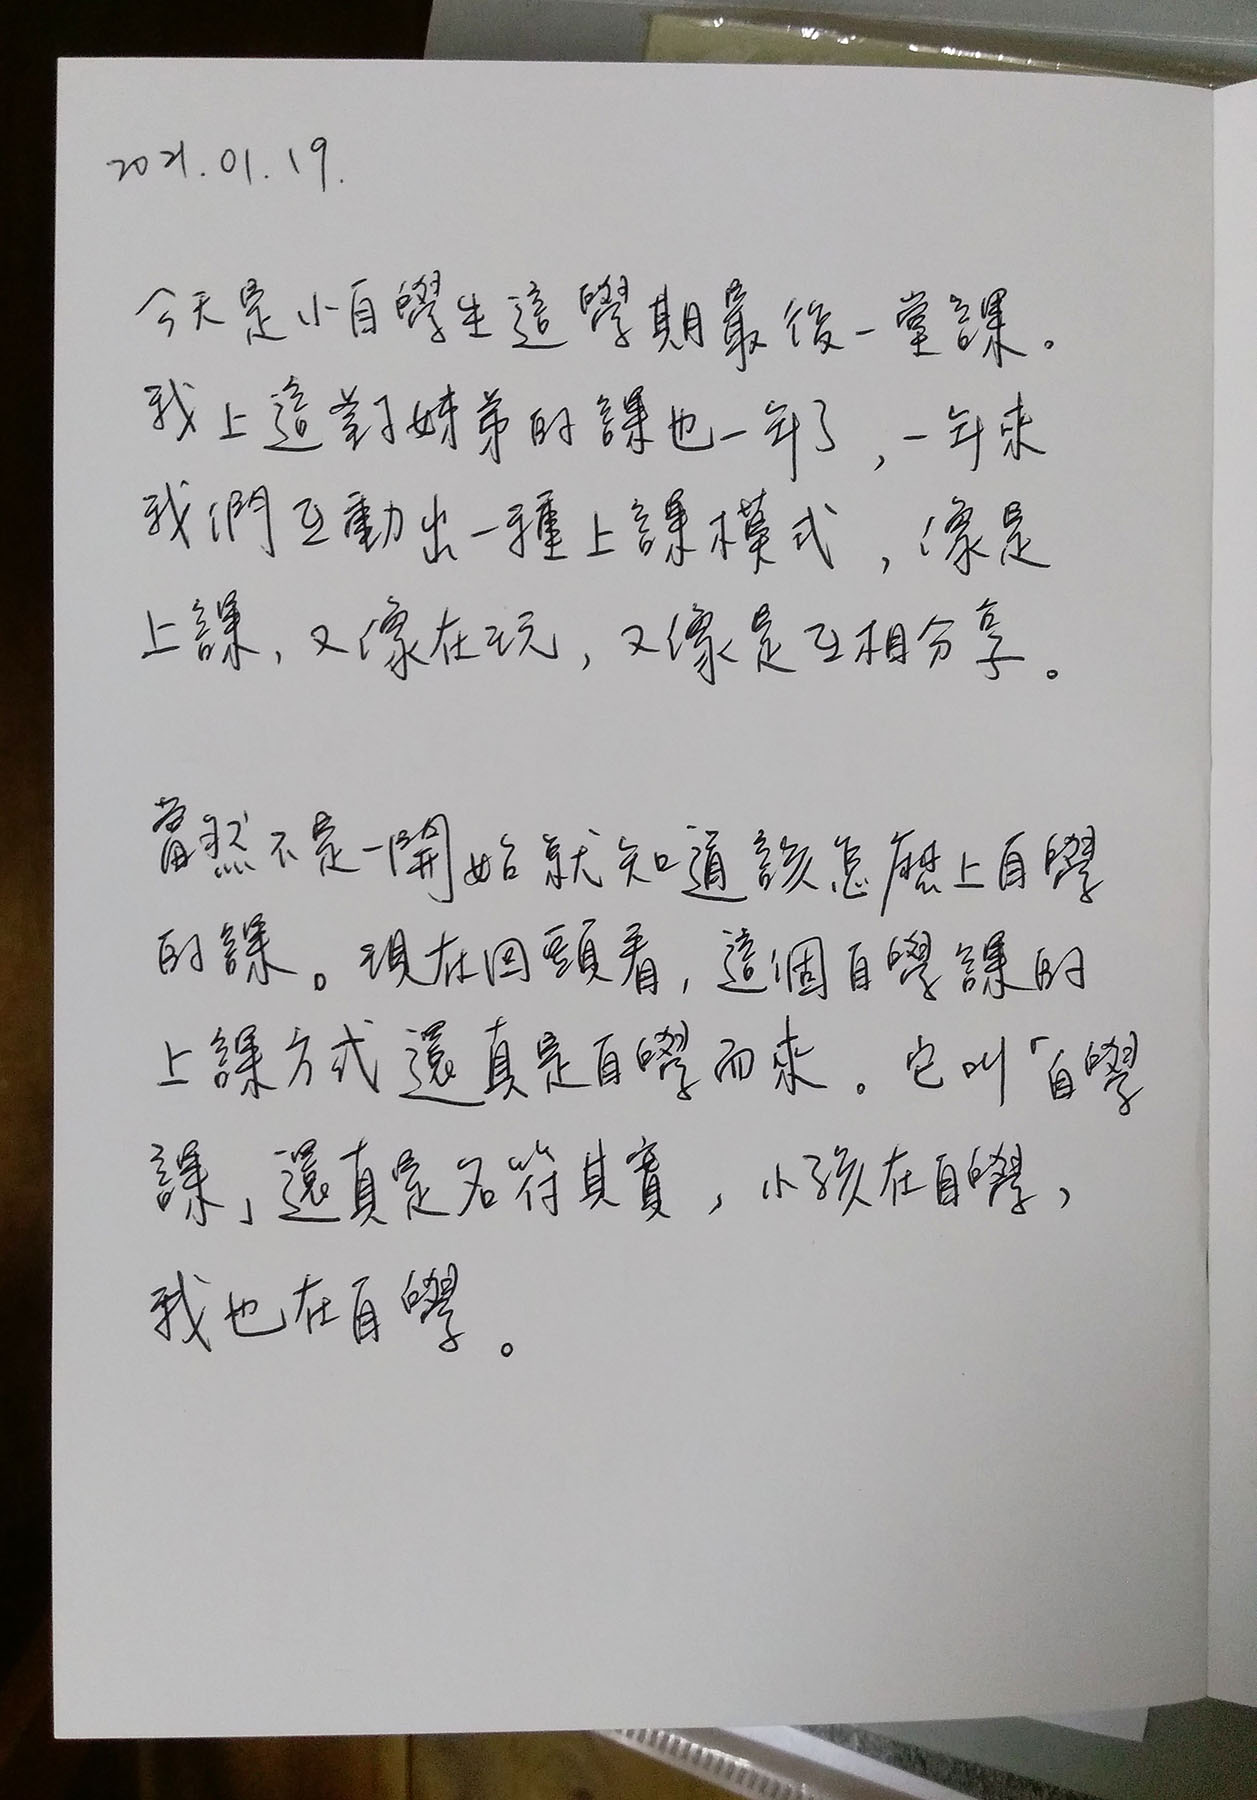 2021.01.19.
今天是小自學生這學期最後一堂課。
我上這對姊弟的課也一年了，一年來
我們互動出一種上課模式，像是
上課，又像在玩，又像是互相分享。
當然不是一開始就知道該怎麼上自學
的課。現在回頭看，這個自學課的
上課方式還真是自學而來。它叫「自學
課」還真是名符其實，小孩在自學，
我也在自學。